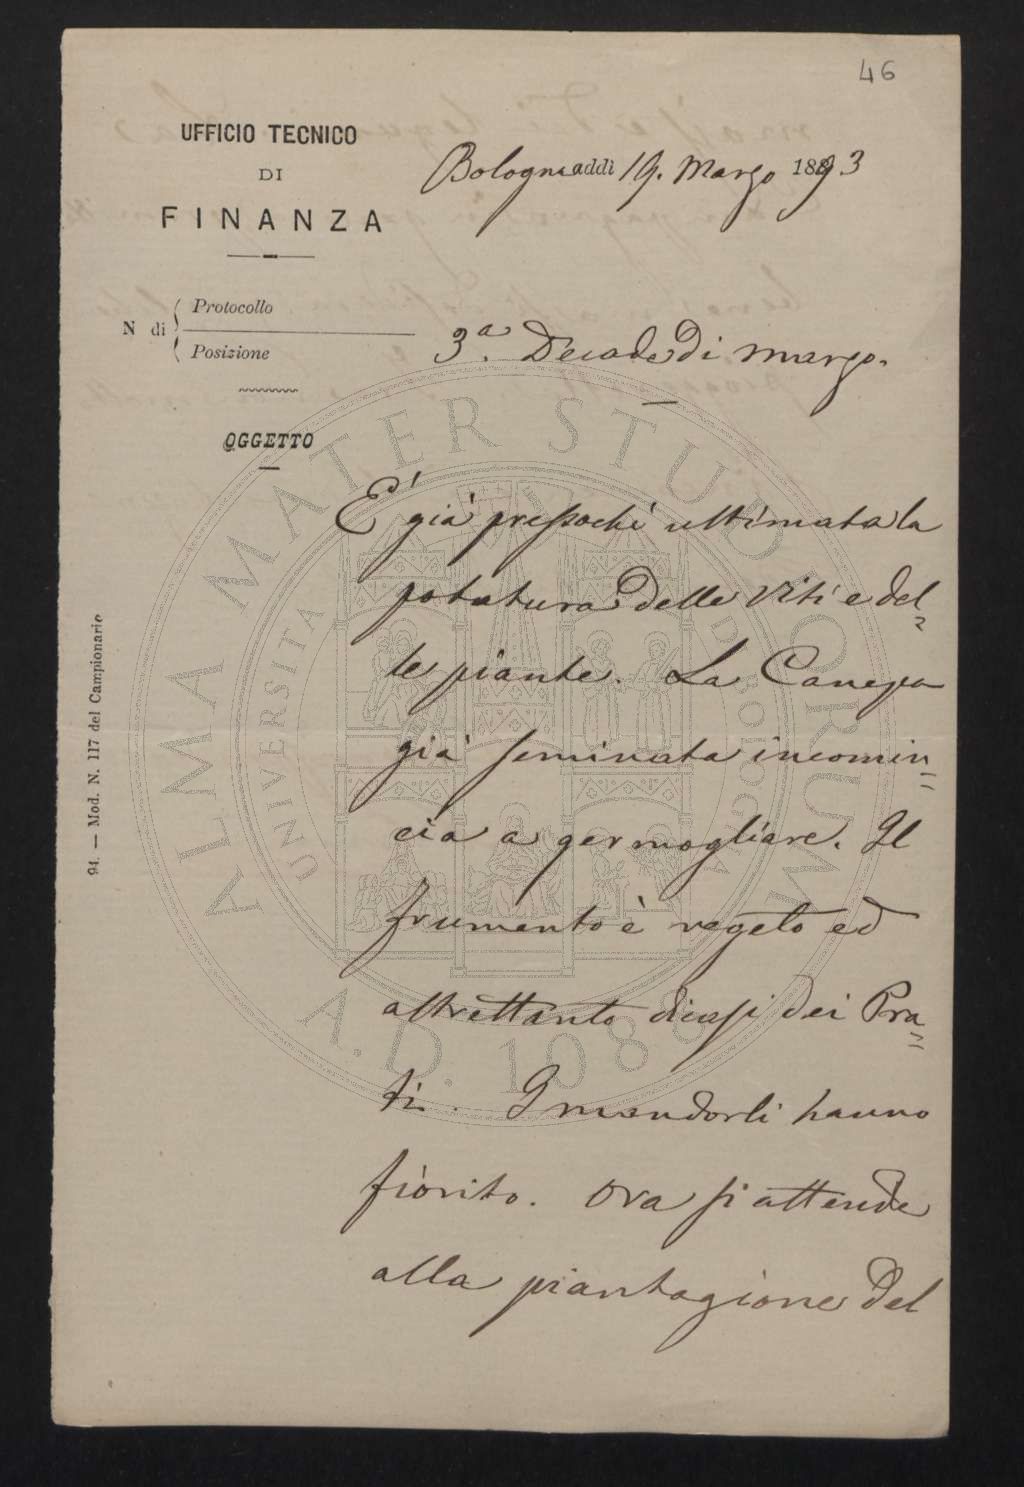 46
UFFICIO TECNICO
DI
FINANZA
Bologna addì 19. Marzo 1893
N di
Protocollo
Posizione
3a. Decade di marzo.
OGGETTO
E' già pressochè ultimata la
potatura delle Viti e del=
le piante. La Canepa
già seminata incomin=
cia a germogliare. Il
frumento è vegeto ed
altrettanto dicasi dei Pra=
ti. I mandorli hanno
fiorito. Ora si attende
alla piantagione del
94. — Mod. N. 117 del Campionario
ALMA MATER STUDIORUM
UNIVERSITÀ DI BOLOGNA
A.D. 1088